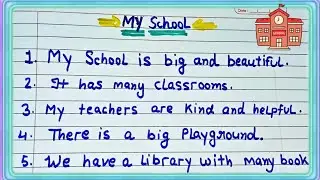 My School
1. My School is big and beautiful.
2. It has many classrooms.
3. My teachers are kind and helpful.
4. There is a big Playground.
5. We have a Library with many book